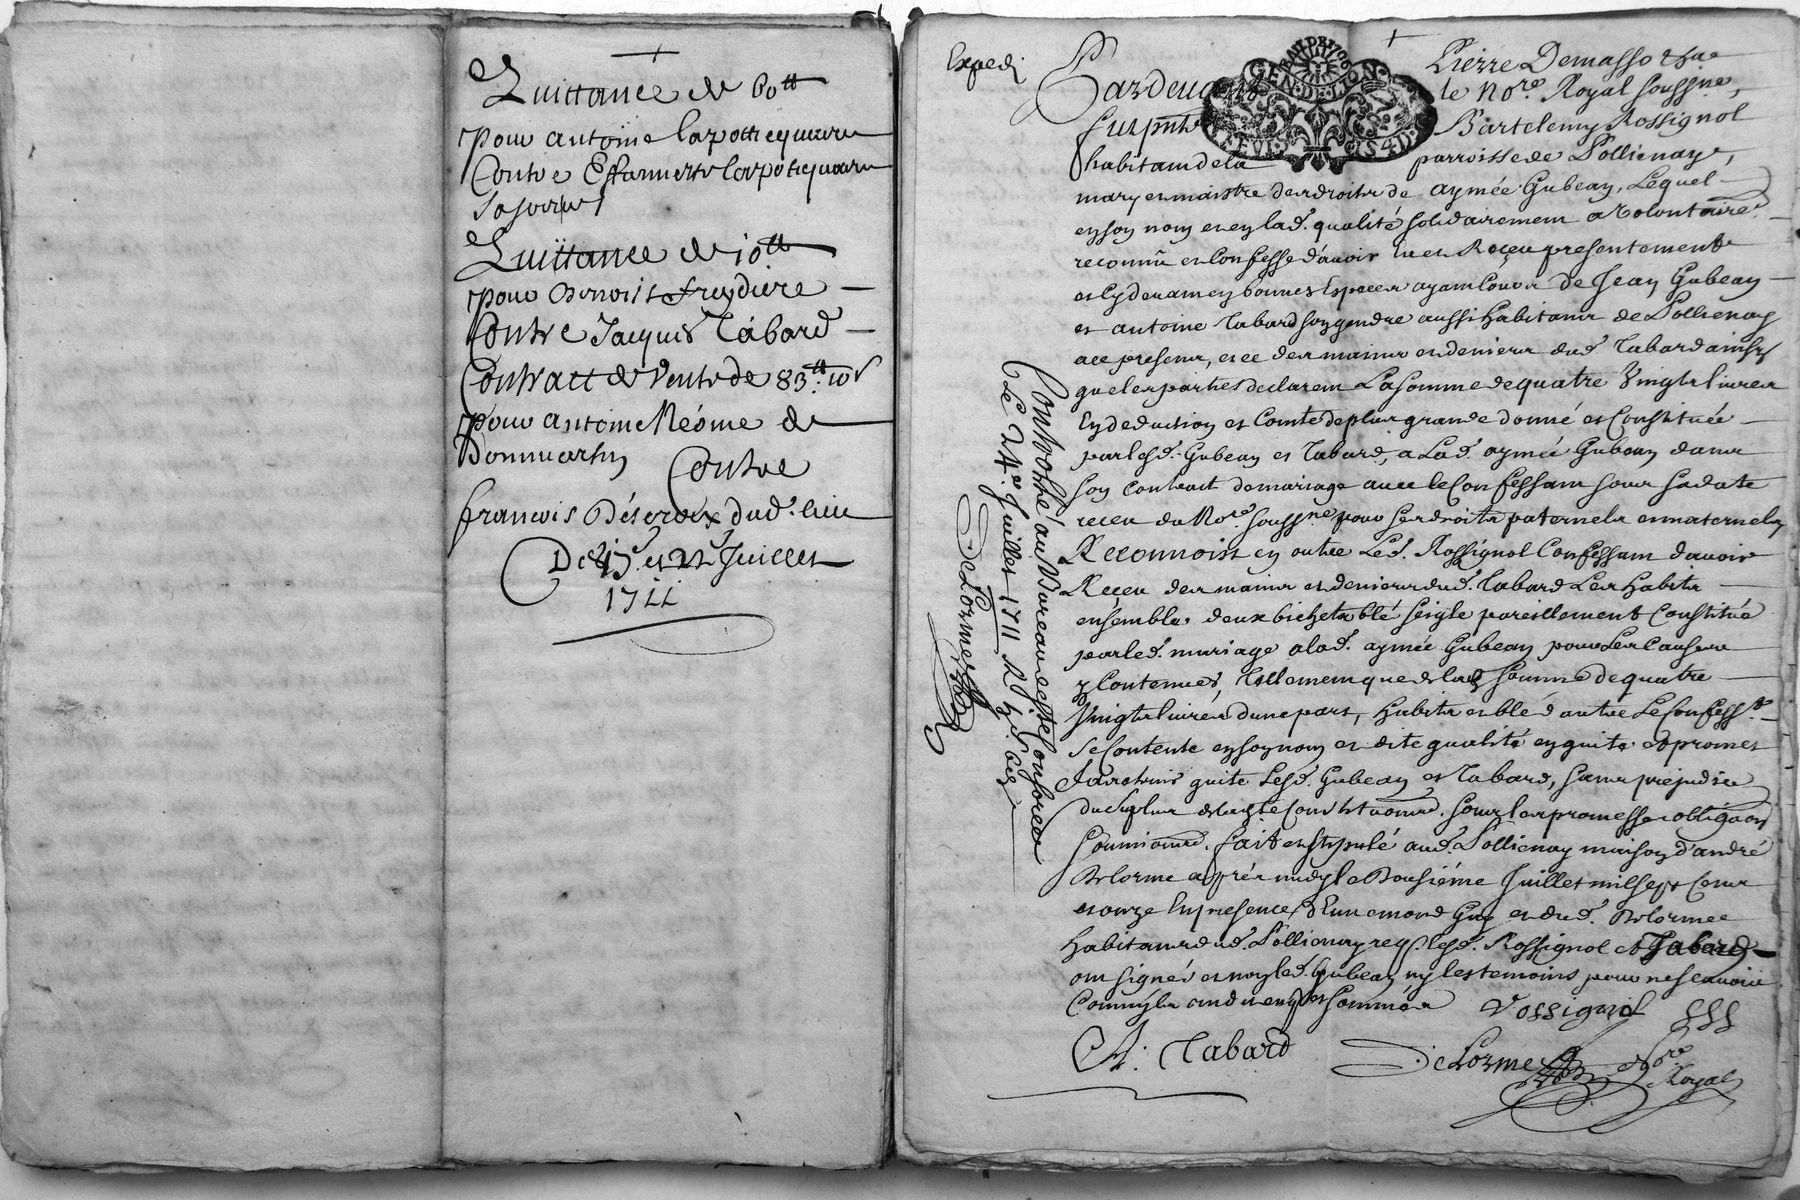 Quittance de 60tt
pour antoine lapotiequaire
Contre Estiennette lapotiequaire
sa soeur
Quittance de 10tt
pour Benoist freydiere
Contre Jacques Tabard
Contract de Vente de 83tt: 10s
pour antoine Réome de
Dommartin Contre
francois Déscroix dud. lieu
Des 17e et 22e Juillet
1711
Expedi
GEN. DE LION
Pardevant Pierre Demasso &
le No.re Royal soussné,
furpnt Bartelemy Rossignol
habitant de la parroisse de Pollienay,
mary et maistre des droits de aymée Gubean, Lequel
en son nom et en lad. qualité solidairement a volontaire
reconnû et Confessé d'avoir eu et Reçeu presentement
et cy devant en bonnes Especes ayant Cours de Jean Gubean
et antoine Tabard son gendre aussi habitants de Pollienay
ace presents, et ce des mains et deniers dud. Tabard ainsy
que les parties declarent La somme de quatre Vingts livres
En deduction et Comte de plus grande donné et Constituée
par lesd. Gubean et Tabard, a Lad. aymée Gubean dans
son contract de mariage avec le Confessant sous sa date
receu du No.re soussné pour ses droits paternels et maternels
Reconnoist en outre Led. Rossignol Confessant d'avoir
Reçeu des mains et deniers dud. Tabard Les habits
ensembles deux bichets blé seigle pareillement Constitué
par led. mariage a lad. aymée Gubean pour Les Causes
y Contenues, tellement que de lad. somme de quatre
Vingts livres dune part, habits et blé d'autre Le Confesst
se Contente en son nom et dite qualité en quite et promet
faire tenir quite Lesd. Gubean et Tabard, sans prejudice
du surplus de lad. Constitution. sous les promesses obligaon
soumiond. fait et stipulé aud. Pollienay maison d'andré
Delorme après midy le Dousiéme Juillet mil sept Cens
et onze En presence d'Ennemond Guy et dud. Delorme
habitants dud. Pollienay req. lesd. Rossignol et Tabard
ont signés et non led. Gubean ny les temoins pour ne scavoir
Comm ils ont dit enquis et sommés
Rossignol
A: Tabard
Delorme No.re
Royal
Controllé au Bureau de Ste Consorce
Le 24e. Juillet 1711
Delorme